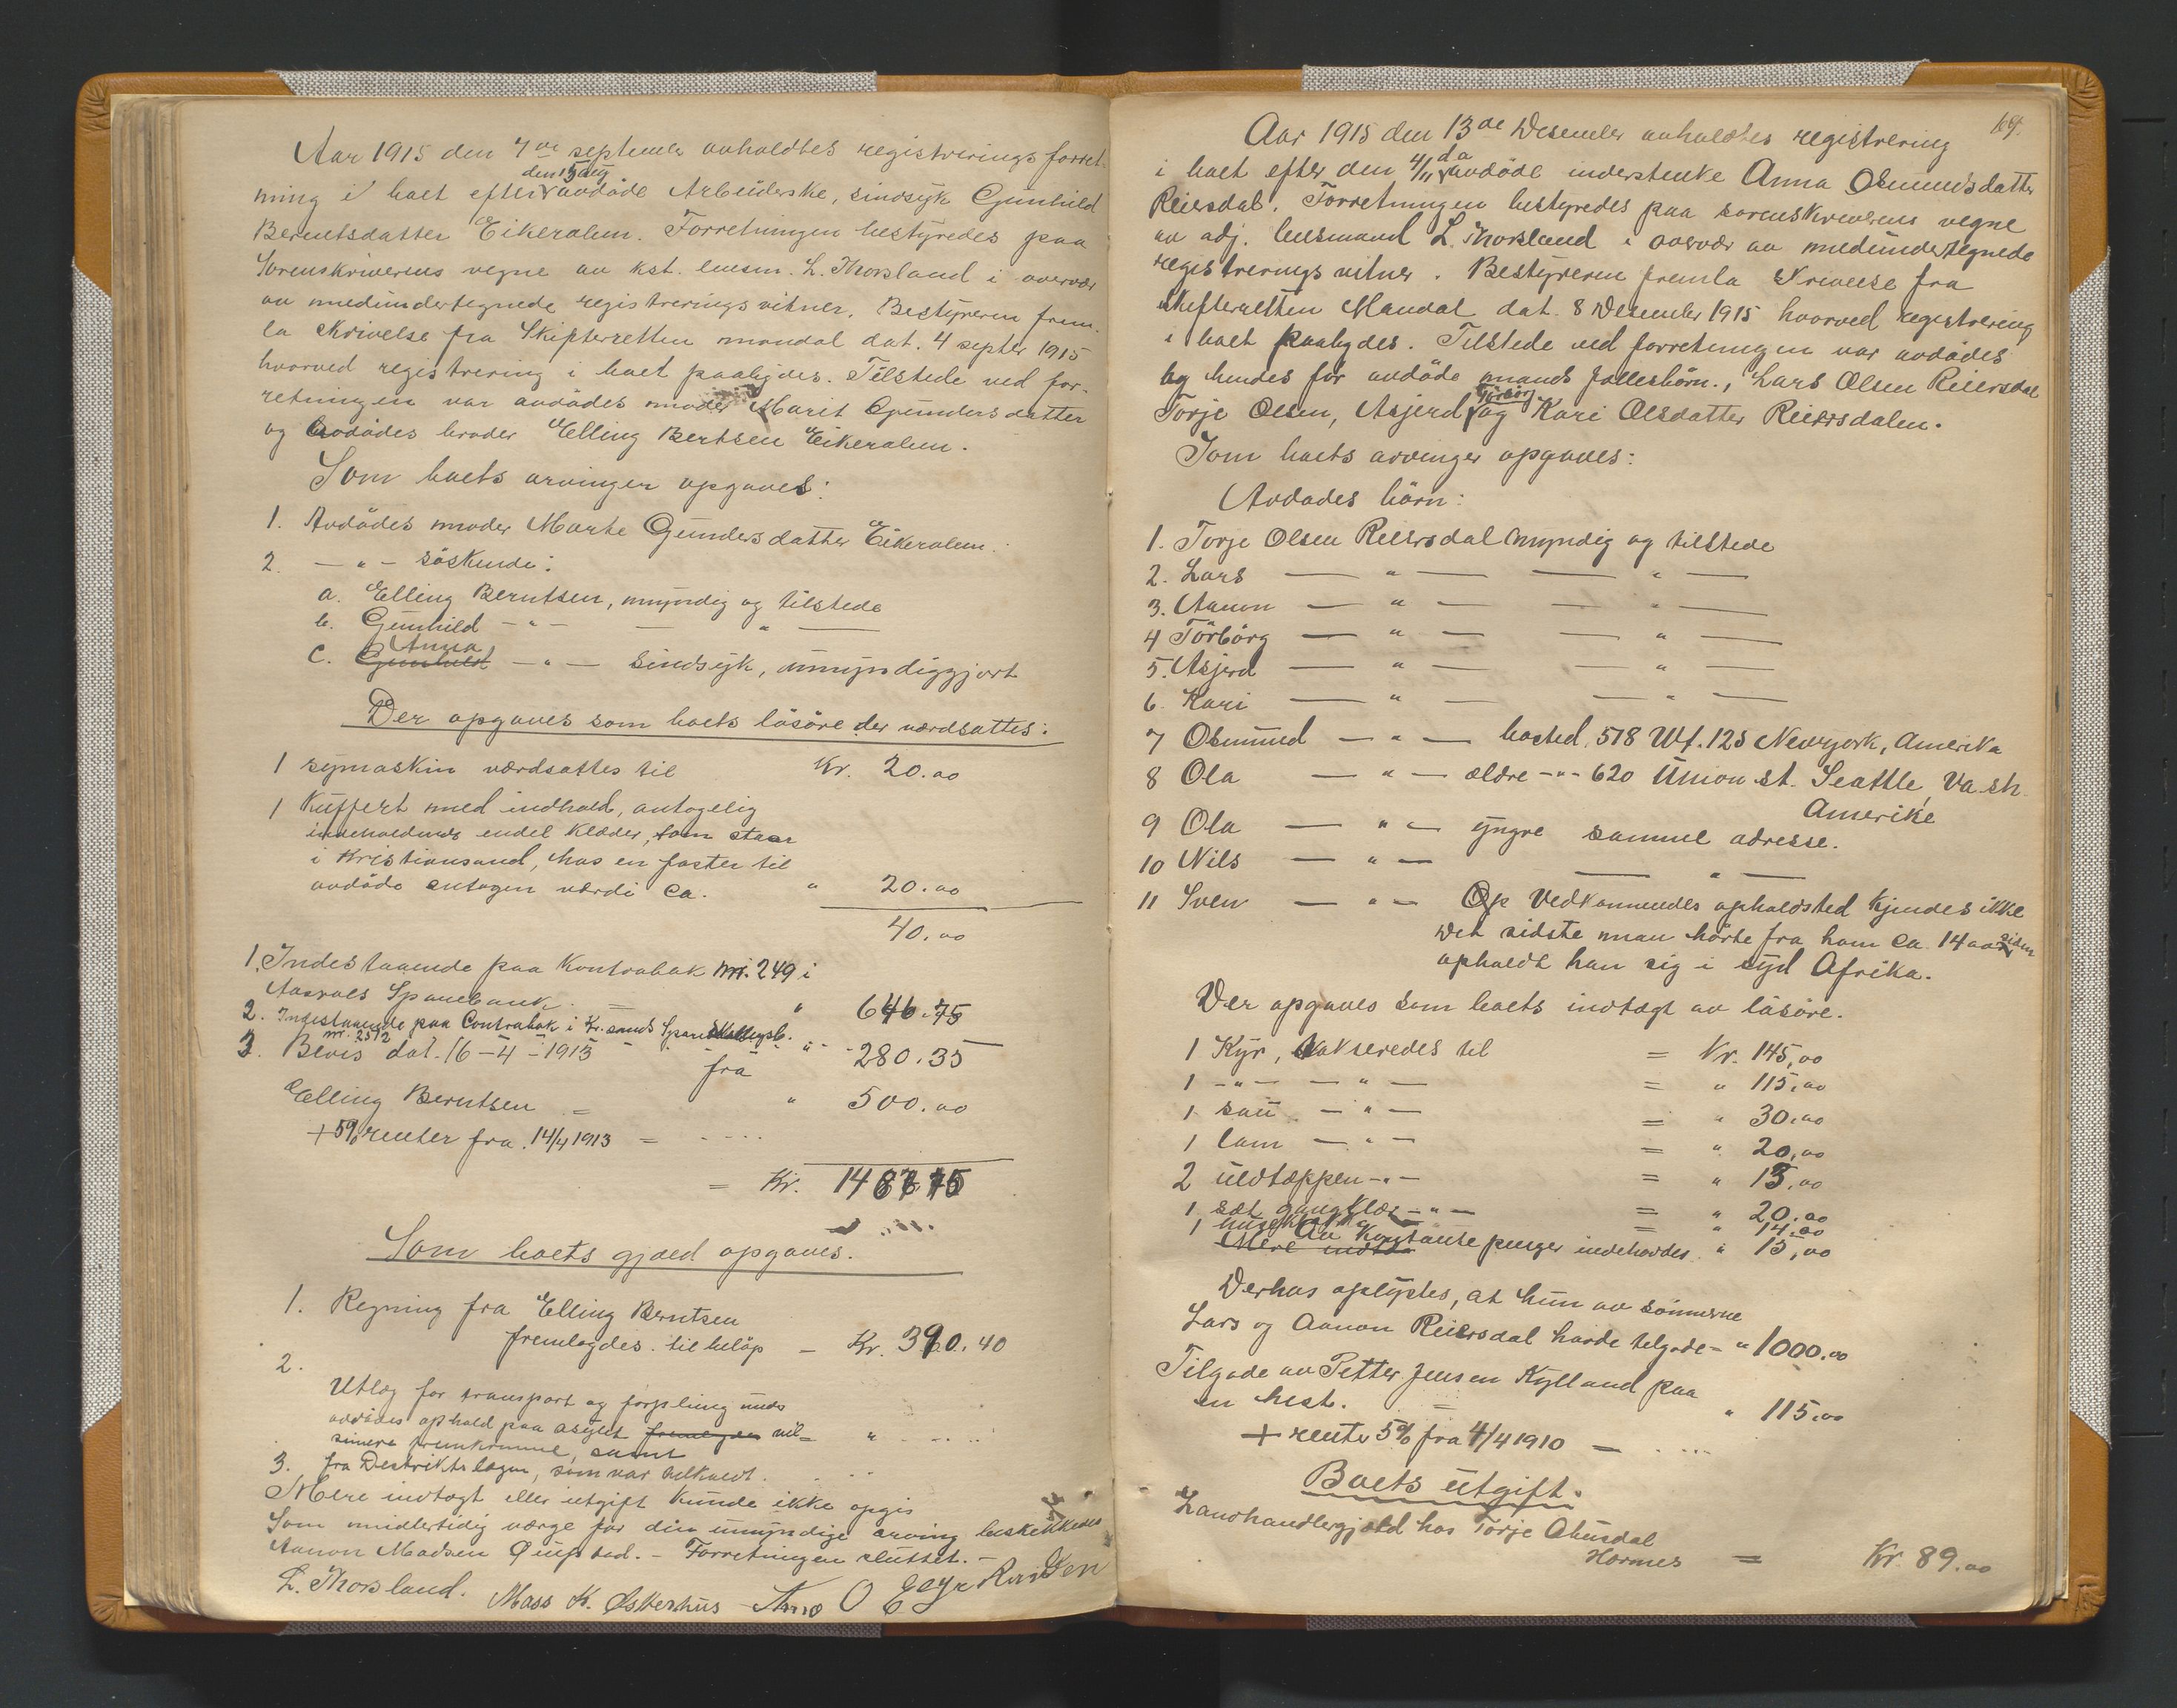 Aar 1915 den 7de septemer avholdtes registrerings forret-
ning i boet efter den 15 aug avdöde Arbeiderske, sindsyk Gunhild
Berentsdatter Eikeralen. Forretningen bestyredes paa
Sorenskriverens vegne av kst. lensm. L. Thorsland i overvær
av medundertegnede registrerings vitner. Bestyreren frem-
la skrivelse fra Skifteretten mandal dat. 4 septbr 1915
hvorved registrering i boet paabydes. Tilstede ved for-
retningen var avdödes moder Marit Gundersdatter
og avdödes broder Elling Bertsen Eikeralen.
Som boets arvinger opgaves:
1. Avdödes moder Marte Gundersdatter Eikeralen.
2. — " — söskende:
a. Elling Berntsen, myndig og tilstede
b. Gunhild — " — — " —
Anna
c. Gunhild — " — sindsyk, umyndiggjort
Der opgaves som boets lösöre der værdsattes:
1 symaskin værdsattes til Kr. 20.00
1 Kuffert med indhold, antagelig
indeholdende endel klæder, som staar
i Kristiansand, hos en faster til
avdöde antagen værdi ca. " 20.00
40.00
1. Indestaaende paa Kontrabok nr. 249 i
Aaserals Sparebank = " 646.75
2. Indestaaende paa Contrabok i Kr.sands Spare
nr. 2512
3. Bevis dat. 16-4-1913 " 280.35
fra
Elling Berntsen = " 500.00
+ 5% renter fra 14/4 1913 = . . . .
= Kr.
Som boets gjæld opgaves.
1. Regning fra Elling Berntsen
fremlagdes til beløp — Kr. 390.40
2.
Utlæg for transport og forpleining under
avdödes ophold paa asylet fremlegges vil
senere fremkomme, samt
3. fra Distriktslægen, som var tilkaldt.
Mere indtægt eller utgift kunde ikke opgis
Som midlertidig værge for din umyndige arving beskikkedes
Aanon Madsen Øugstad. – Forretningen sluttet. –
L. Thorsland. Mass K. Øskerhus
69.
Aar 1915 den 13de Desember avholdtes registrering
i boet efter den 4/11 d.a. avdöde inderstenke Anna Osmundsdatter
Reiersdal. Forretningen bestyredes paa sorenskriverens vegne
av adj. lensmand L. Thorsland i overvær av medundertegnede
registrerings vitner. Bestyreren fremla skrivelse fra
skifteretten Mandal dat. 8 Desember 1915 hvorved registrering
i boet paabydes. Tilstede ved forretningen var avdödes
og hendes för avdöde mands fællesbörn., Lars Olsen Reiersdal
Torje Olsen, Asjerd, Törbörg og Kari Olsdatter Reiersdalen.
Som boets arvinger opgaves:
Avdödes börn:
1. Torje Olsen Reiersdal myndig og tilstede
2. Lars — " — — " —
3. Aanon — " — — " —
4 Törbörg — " — — " —
5. Asjerd — " — — " —
6. Kari — " — — " —
7 Osmund — " — bosted. 518 Wf. 125 Newyork, Amerika
8 Ola — " — ældre — " — 620 Union st. Seattle, Va-sh
Amerike
9 Ola — " — yngre sammel adresse.
10 Nils — " — — " —
11 Sven — " — Op Vedkommendes opholdsted kjendes ikke
Det sidste man hörte fra ham ca. 14 aar siden
opholdt han sig i syd Afrika.
Der opgaves som boets indtægt av lösöre.
1 Kyr, takseredes til = Kr. 145,00
1 — " — — " — = " 115,00
1 sau — " — = " 30.00
1 lam — " — = " 20,00
2 uldtæppen — " — = " 15,00
1 sæt gangklær — " — = " 20.00
1 = " 14.00
Mere indtæ Av Kontante penger indehavdes " 15,00
Derhos oplystes, at hun av sönnerne
Lars og Aanon Reiersdal havde tilgode = " 1000.00
Tilgode av Petter Jensen Kylland paa
en hest. = " 115.00
+ rente 5% fra 4/4 1910 = . . . .
Boets utgift.
Landhandlergjæld hos Torje Aasdal
Hornes = Kr. 89.00